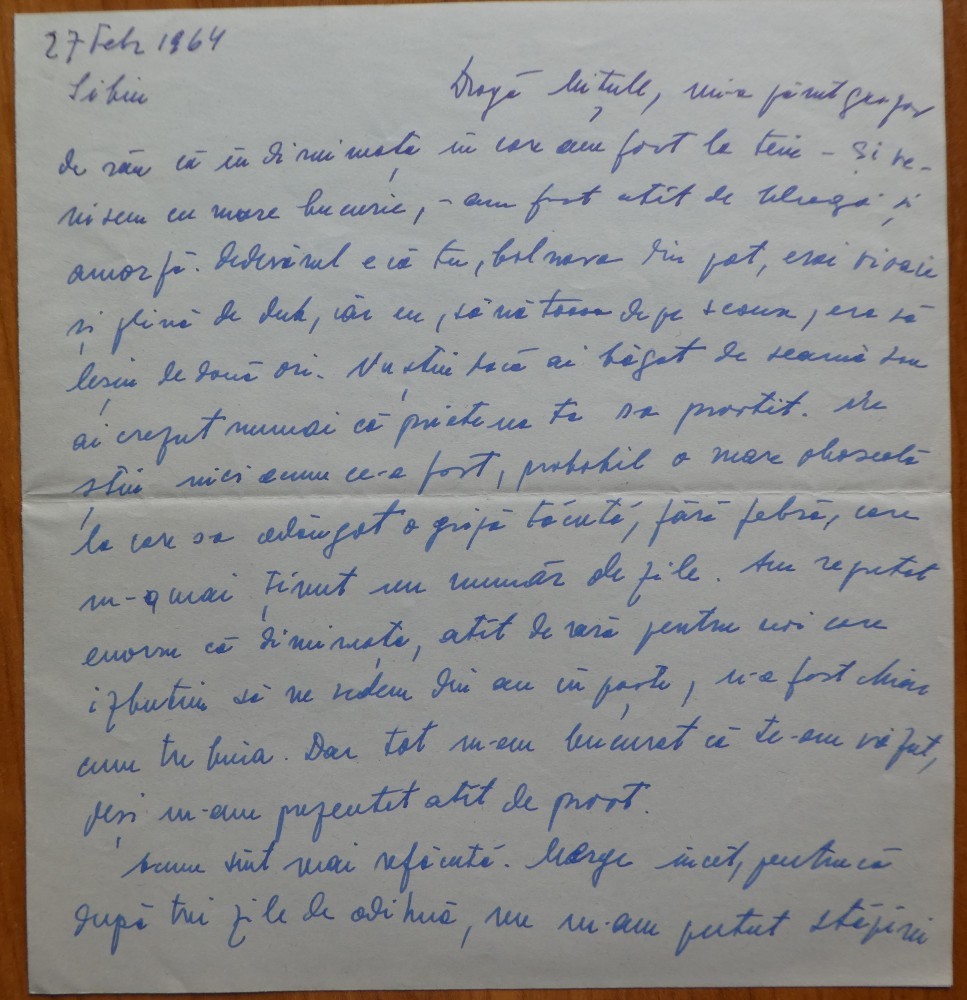 27 Febr 1964
Sibiu
Dragă Mitule, mi-a părut groaznic
de rău că în dimineața în care am fost la tine - și ve-
nisem cu mare bucurie, - am fost atît de bleagă și
amorfă. Adevărul e că tu, bolnava din pat, erai vioaie
și plină de duh, iar eu, sănătoasa de pe scaun, era să
leșin de două ori. Nu știu dacă ai băgat de seamă sau
ai crezut numai că prietena ta s-a prostit. Nu
știu nici acum ce-a fost, probabil o mare oboseală
la care s-a adăugat o gripă tăcută, fără febră, care
m-a mai ținut un număr de zile. Am regretat
enorm că dimineața, atît de rară pentru noi care
izbutim să ne vedem din an în paște, n-a fost chiar
cum trebuia. Dar tot m-am bucurat că te-am văzut,
deși m-am prezentat atît de prost.
Acum sînt mai refăcută. Merge încet, pentru că
după trei zile de odihnă, nu m-am putut stăpîni